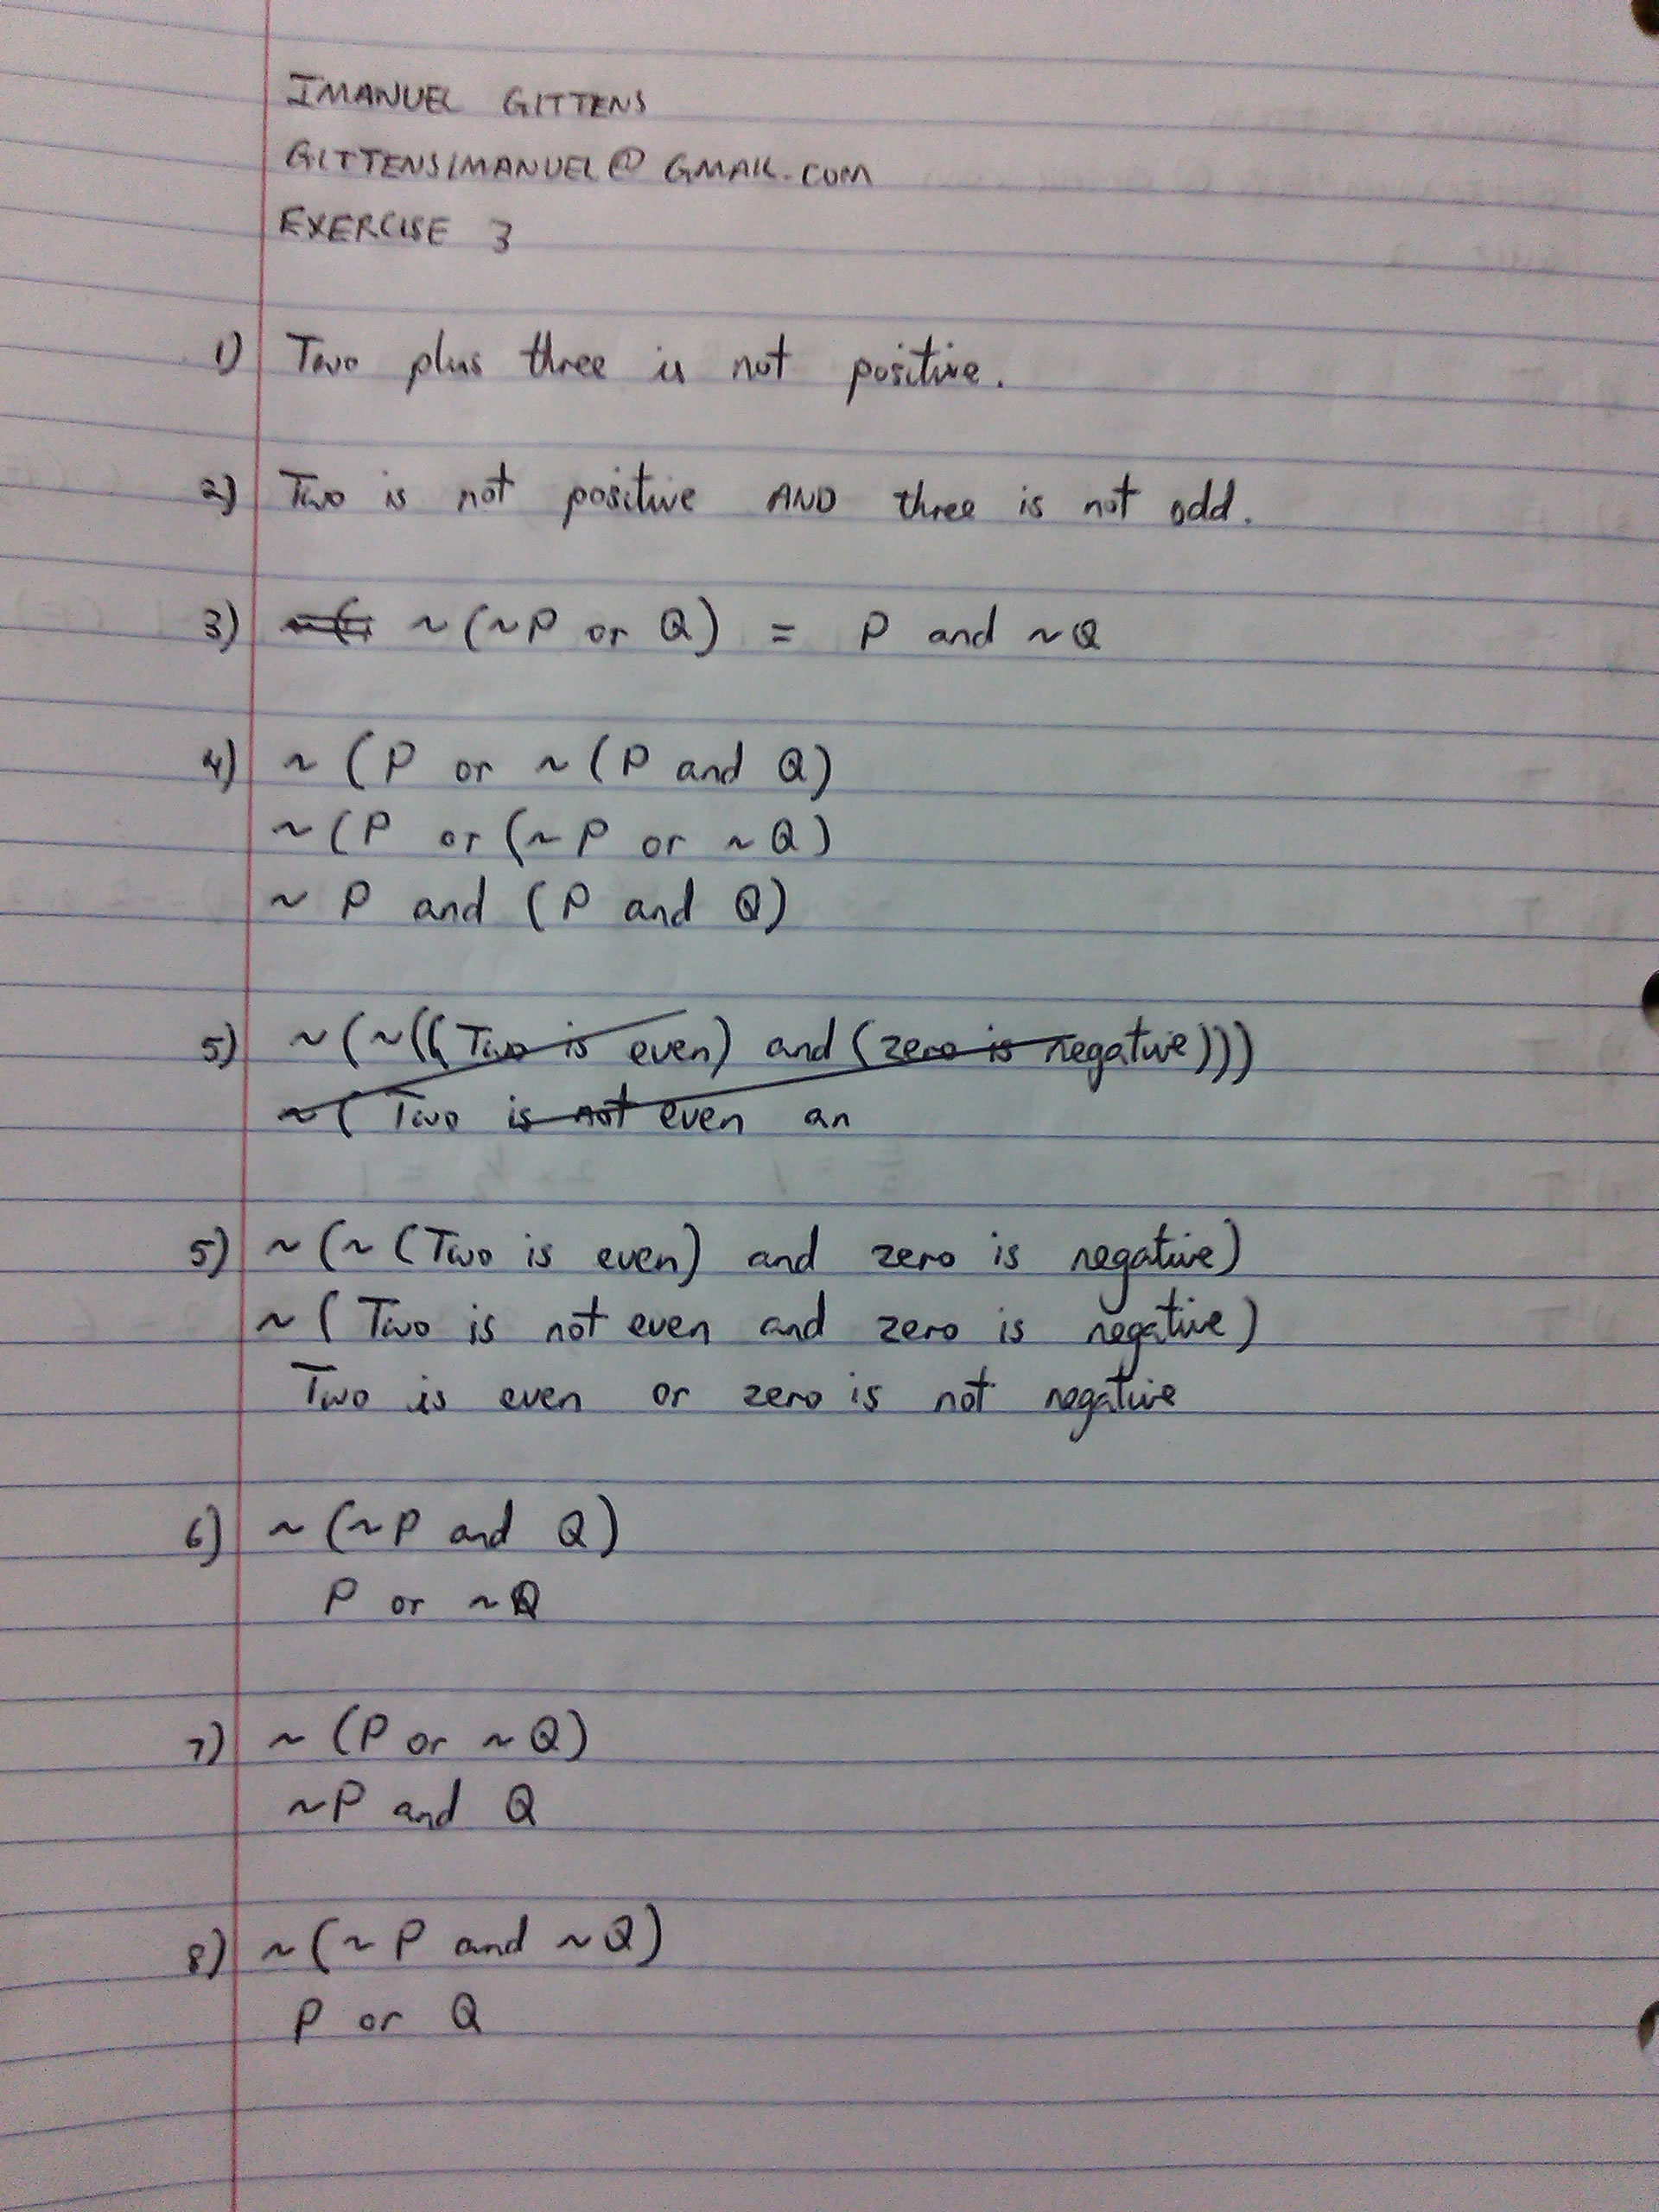 IMANUEL GITTENS
GITTENSIMANUEL@GMAIL.COM
EXERCISE 3
1) Two plus three is not positive.
2) Two is not positive AND three is not odd.
3) ~(~P or Q) = P and ~Q
4) ~(P or ~(P and Q)
~(P or (~P or ~Q)
~P and (P and Q)
5) ~(~((Two is even) and (zero is negative)))
~(Two is not even an
5) ~(~(Two is even) and zero is negative)
~(Two is not even and zero is negative)
Two is even or zero is not negative
6) ~(~P and Q)
P or ~Q
7) ~(P or ~Q)
~P and Q
8) ~(~P and ~Q)
P or Q